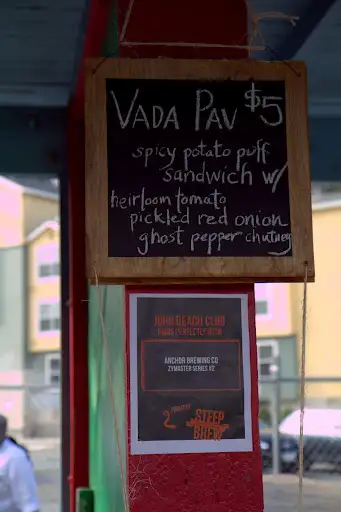 VADA PAV $5
spicy potato puff
sandwich w/
heirloom tomato
pickled red onion
ghost pepper chutney
JUHU BEACH CLUB
PAIRS PERFECTLY WITH
ANCHOR BREWING CO
ZYMASTER SERIES #2
2
STEEP
BREW